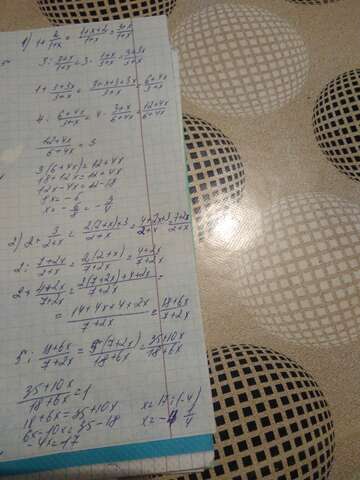 1) 1+2/1+x = 1+x+2/1+x = 3+x/1+x
3: 3+x/1+x = 3· 1+x/3+x = 3+3x/3+x
1+ 3+3x/3+x = 3+x+3+3x/3+x = 6+4x/3+x
4: 6+4x/3+x = 4· 3+x/6+4x = 12+4x/6+4x
12+4x/6+4x = 3
3(6+4x)=12+4x
18+12x=12+4x
12x-4x=12-18
8x=-6
x=-6/8=-3/4
2) 2+ 3/2+x = 2(2+x)+3/2+x = 4+2x+3/2+x = 7+2x/2+x
2: 7+2x/2+x = 2(2+x)/7+2x = 4+2x/7+2x
2+ 4+2x/7+2x = 2(7+2x)+4+2x/7+2x =
= 14+4x+4+2x/7+2x = 18+6x/7+2x
5: 18+6x/7+2x = 5(7+2x)/18+6x = 35+10x/18+6x
35+10x/18+6x = 1
18+6x=35+10x
6x-10x=35-18
-4x=17
x=17:(-4)
x=-4 1/4